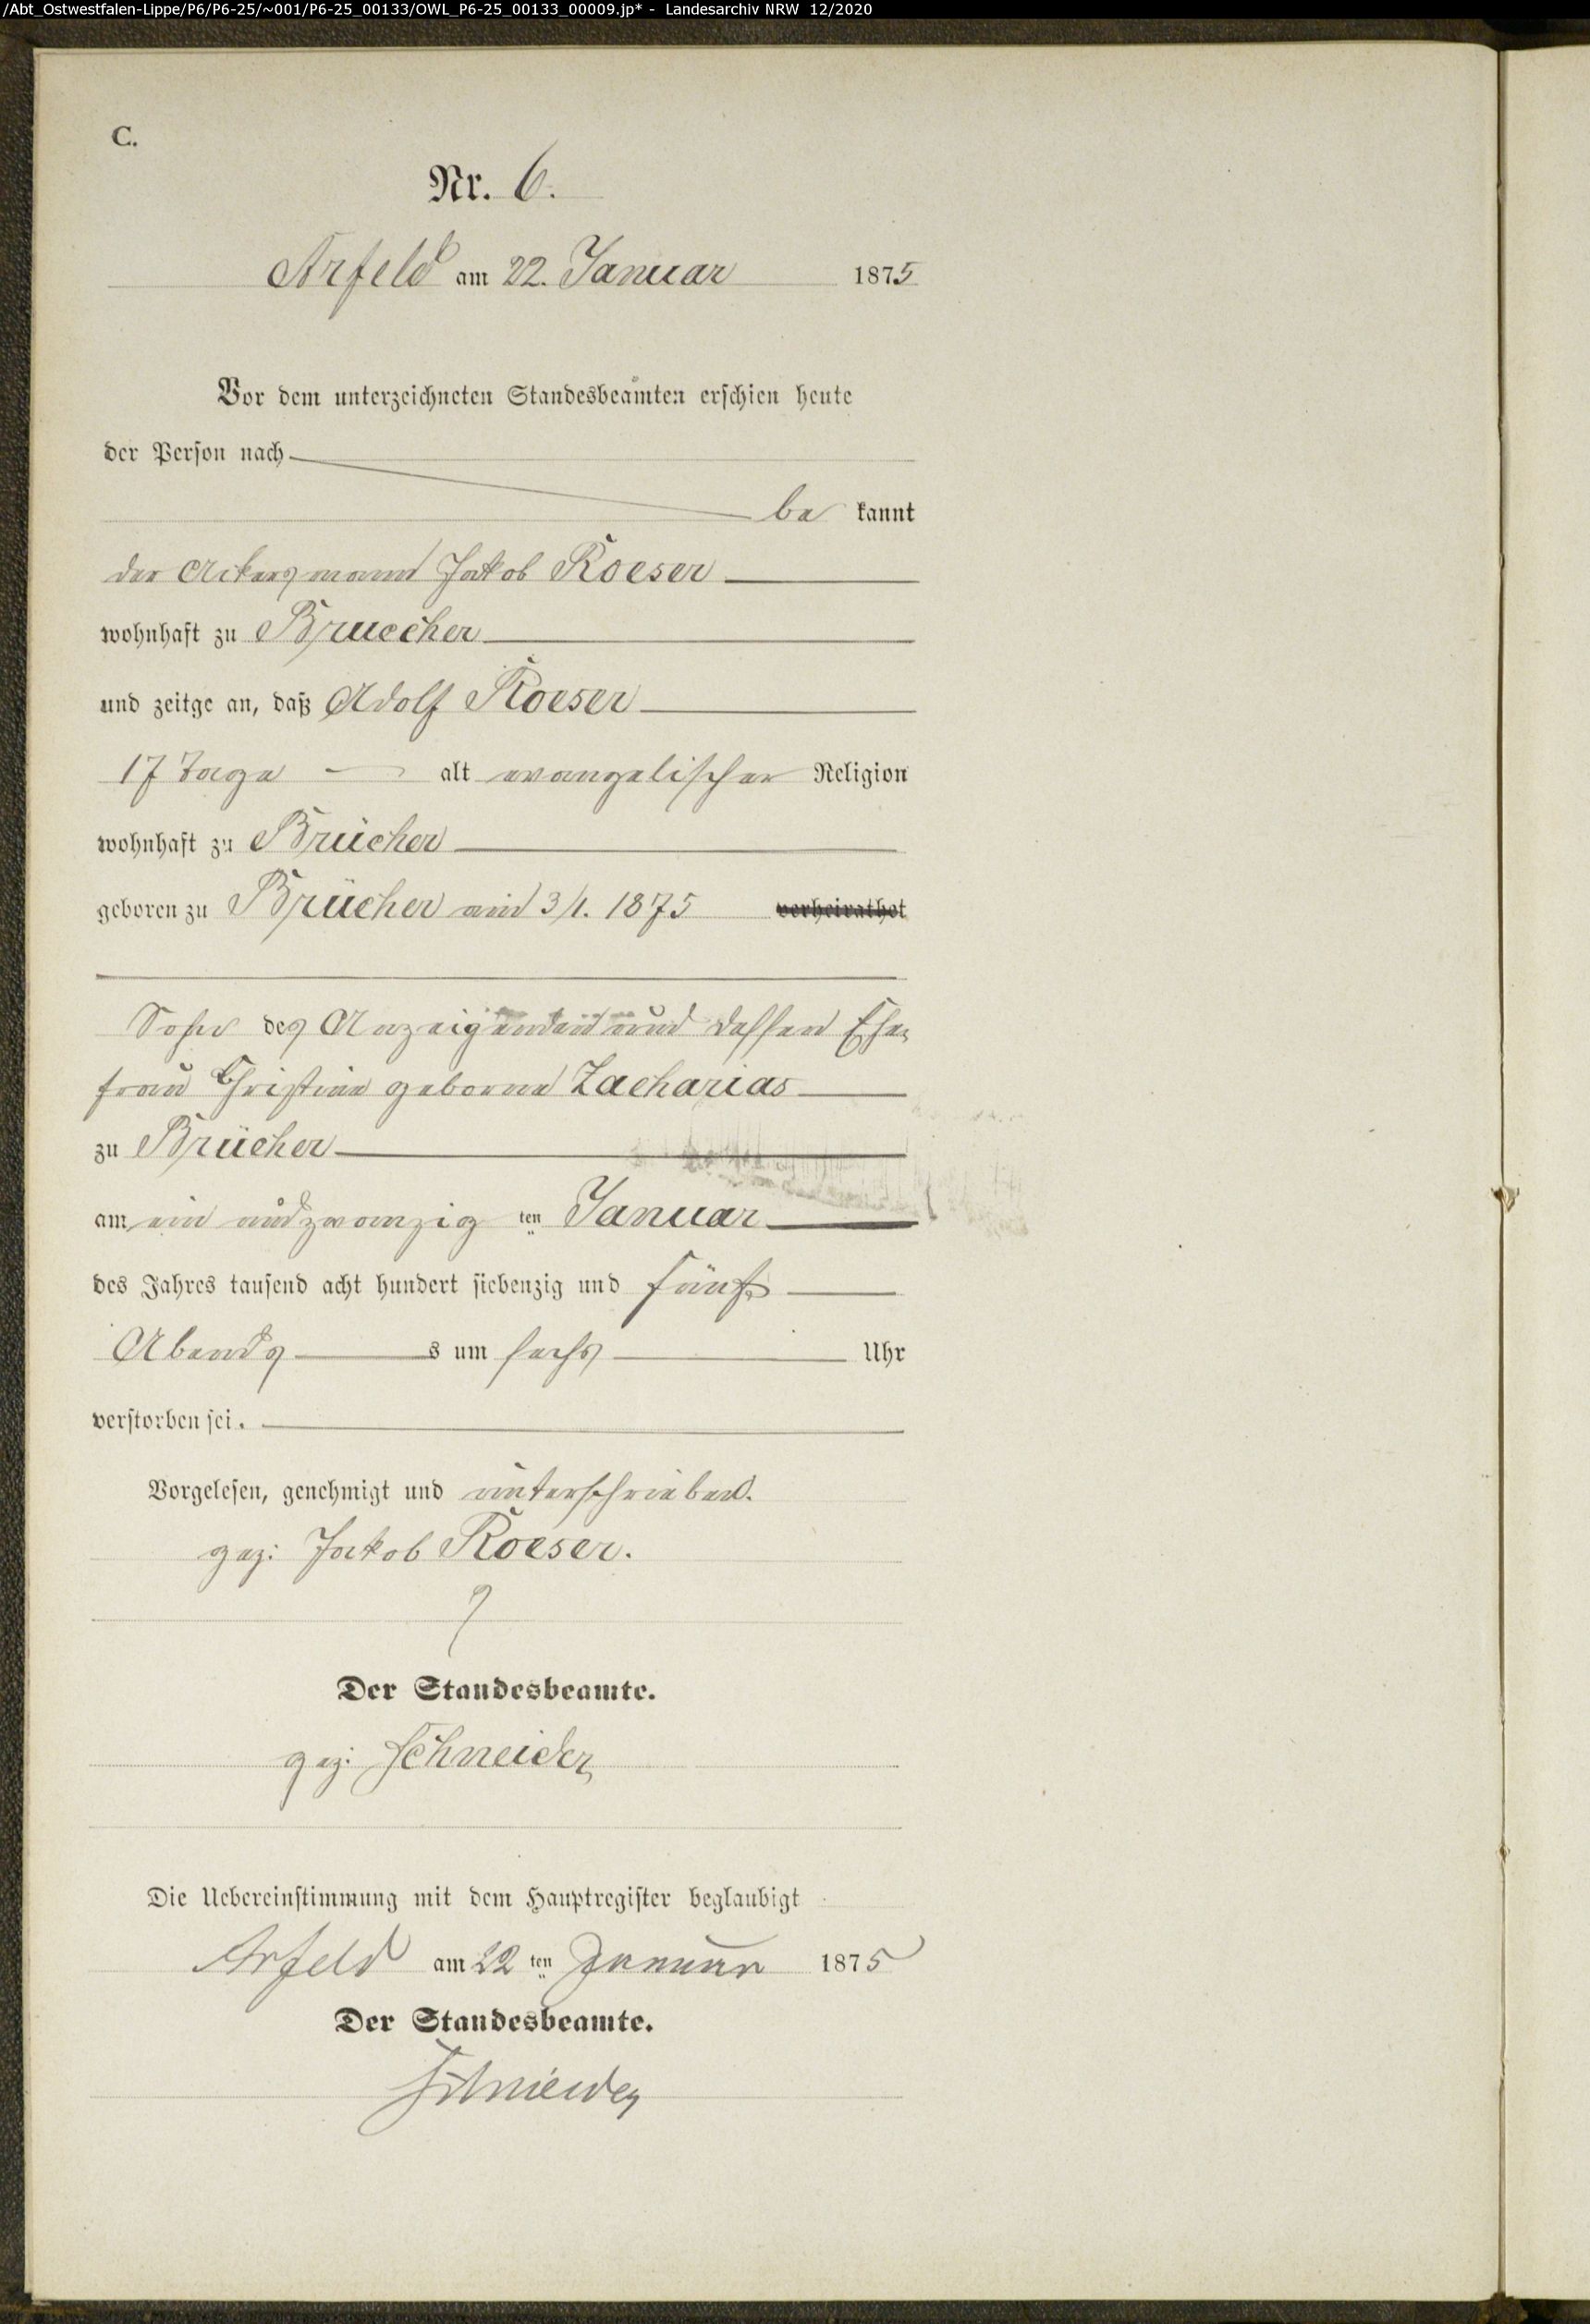 /Abt_Ostwestfalen-Lippe/P6/P6-25/~001/P6-25_00133/OWL_P6-25_00133_00009.jp* - Landesarchiv NRW 12/2020
C.
Nr. 6.
Arfeld am 22. Januar 1875
Vor dem unterzeichneten Standesbeamten erschien heute
der Person nach
be kannt
der Ackersmann Jakob Roeser
wohnhaft zu Bruecher
und zeitge an, daß Adolf Roeser
17 Tage alt evangelischer Religion
wohnhaft zu Brücher
geboren zu Brücher am 3/1. 1875 verheirathet
Sohn des Anzeigenden und dessen Ehe,
frau Christine geborne Zacharias
zu Brücher
am ein und zwanzig ten Januar
des Jahres tausend acht hundert siebenzig und fünf
Abends s um sechs Uhr
verstorben sei.
Vorgelesen, genehmigt und unterschrieben.
gez: Jakob Roeser.
Der Standesbeamte.
gez: Schneider
Die Uebereinstimmung mit dem Hauptregister beglaubigt
Arfeld am 22 ten Januar 1875
Der Standesbeamte.
Schneider